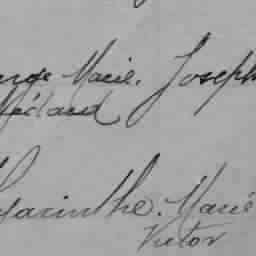 Marie. Joseph
Médard
Hyacinthe. Marie
Victor